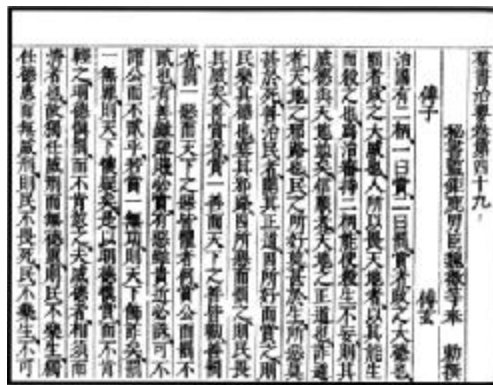 羣書治要卷第四十九
秘書監鉅鹿男臣魏徵等奉 勅撰
傅子 傅玄
治國有二柄一曰賞二曰罰賞者政之大德也
罰者政之大威也人所以畏天地者以其能生
而殺之也爲治審持二柄能使殺生不妄則其
威德與天地並矣信順者天地之正道也詐逆
者天地之邪路也民之所好莫甚於生所惡莫
甚於死善治民者開其正道因所好而賞之則
民樂其德也塞其邪路因所惡而罰之則民畏
其威矣善賞者賞一善而天下之善皆勸善罰
者罰一惡而天下之惡皆懼者何賞公而罰不
貳也有善雖疏賤必賞有惡雖貴近必誅可不
謂公而不貳乎若賞一無功則天下飾詐矣罰
一無罪則天下懷疑矣是以明德慎賞而不肯
輕之明德慎罰而不肯忽之夫威德者相須而
濟者也故獨任威刑而無德惠則民不樂生獨
任德惠而無威刑則民不畏死民不樂生不可